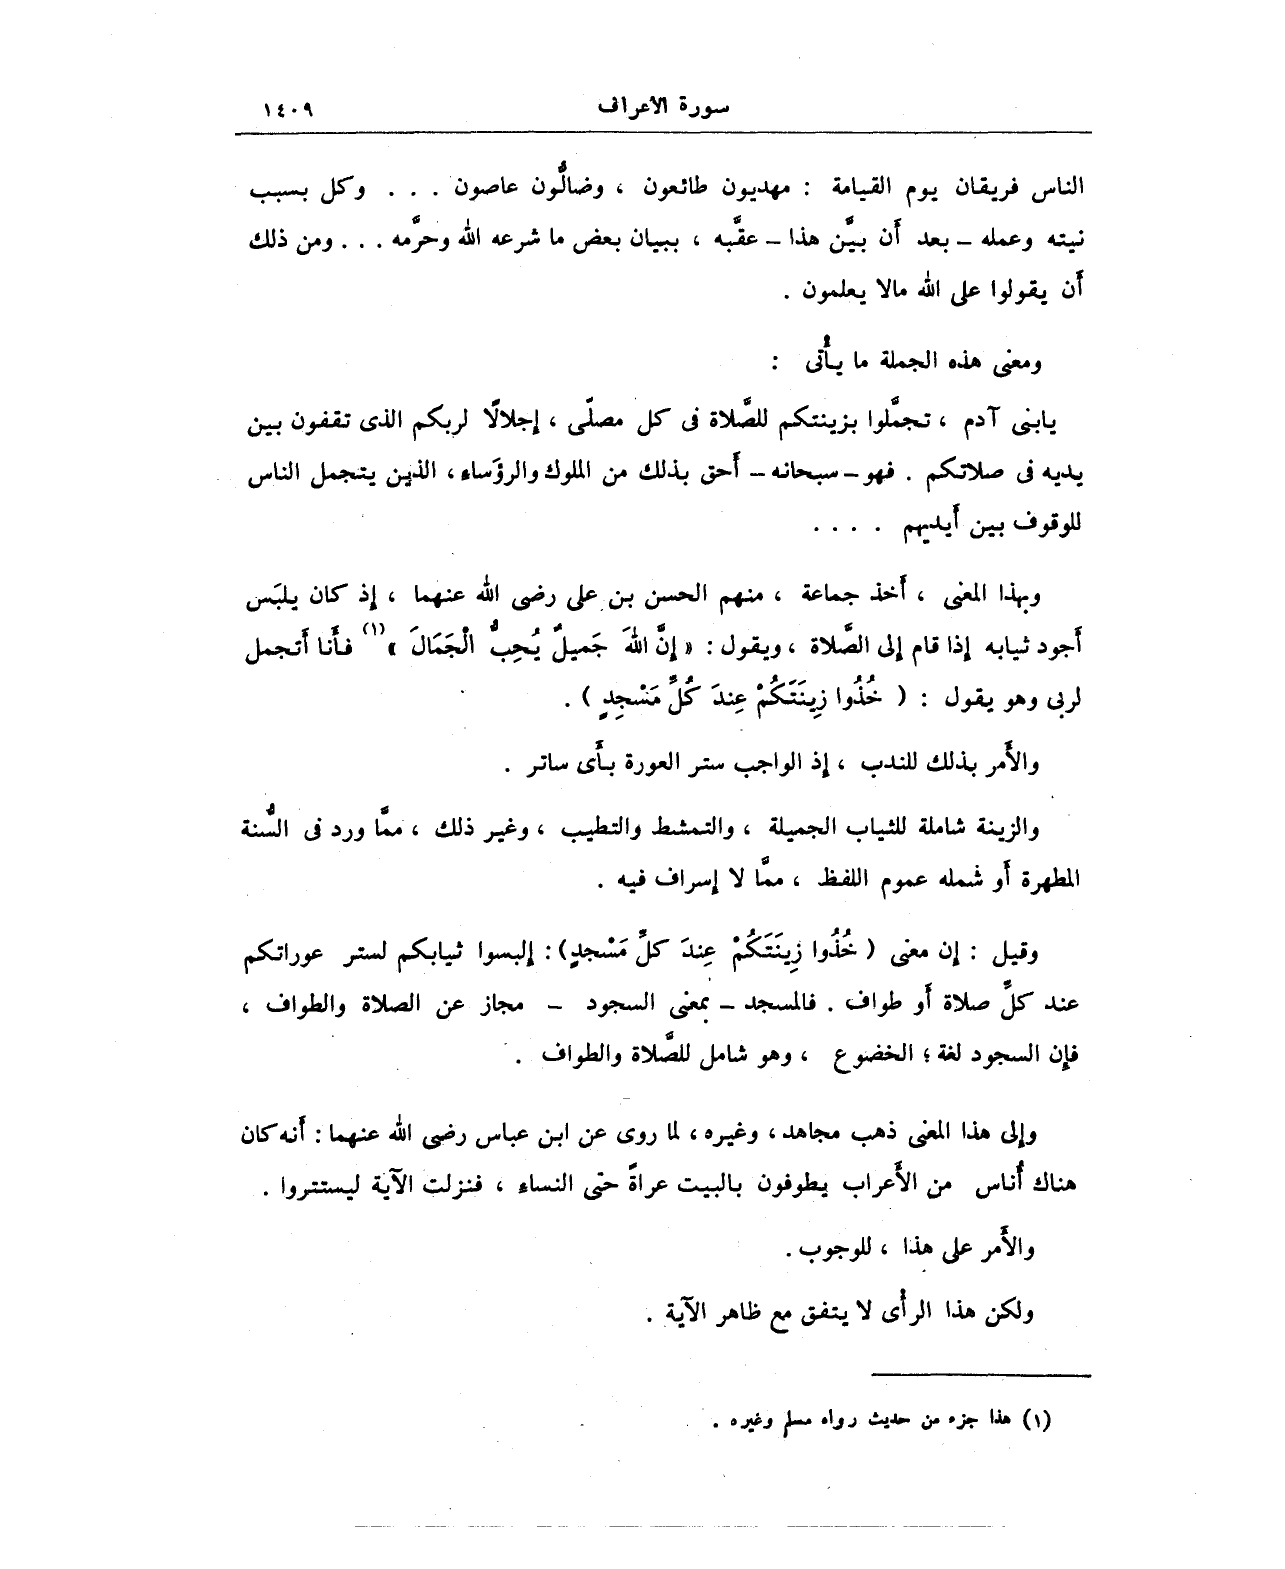 سورة الأعراف ١٤٠٩
الناس فريقان يوم القيامة : مهديون طائعون ، وضالُّون عاصون . . . وكل بسبب
نيته وعمله - بعد أن بيَّن هذا - عقَّبه ، ببيان بعض ما شرعه الله وحرَّمه . . . ومن ذلك
أن يقولوا على الله مالا يعلمون .
ومعنى هذه الجملة ما يأتى :
يابنى آدم ، تجمَّلوا بزينتكم للصَّلاة فى كل مصلّى ، إجلالًا لربكم الذى تقفون بين
يديه فى صلاتكم . فهو - سبحانه - أحق بذلك من الملوك والرؤساء ، الذين يتجمل الناس
للوقوف بين أيديهم . . . .
وبهذا المعنى ، أخذ جماعة ، منهم الحسن بن على رضى الله عنهما ، إذ كان يلبَس
أجود ثيابه إذا قام إلى الصَّلاة ، ويقول : « إِنَّ اللهَ جَمِيلٌ يُحِبُّ الْجَمَالَ » (١) فأنا أتجمل
لربى وهو يقول : ( خُذُوا زِينَتَكُمْ عِندَ كُلِّ مَسْجِدٍ ) .
والأمر بذلك للندب ، إذ الواجب ستر العورة بأى ساتر .
والزينة شاملة للثياب الجميلة ، والتمشط والتطيب ، وغير ذلك ، ممَّا ورد فى السُّنة
المطهرة أو شمله عموم اللفظ ، ممَّا لا إسراف فيه .
وقيل : إن معنى ( خُذُوا زِينَتَكُمْ عِندَ كلِّ مَسْجدٍ ) : إلبسوا ثيابكم لستر عوراتكم
عند كلِّ صلاة أو طواف . فالمسجد - بمعنى السجود - مجاز عن الصلاة والطواف ،
فإن السجود لغة ؛ الخضوع ، وهو شامل للصَّلاة والطواف .
وإلى هذا المعنى ذهب مجاهد ، وغيره ، لما روى عن ابن عباس رضى الله عنهما : أنه كان
هناك أُناس من الأعراب يطوفون بالبيت عراةً حتى النساء ، فنزلت الآية ليستتروا .
والأمر على هذا ، للوجوب .
ولكن هذا الرأى لا يتفق مع ظاهر الآية .
(١) هذا جزء من حديث رواه مسلم وغيره .